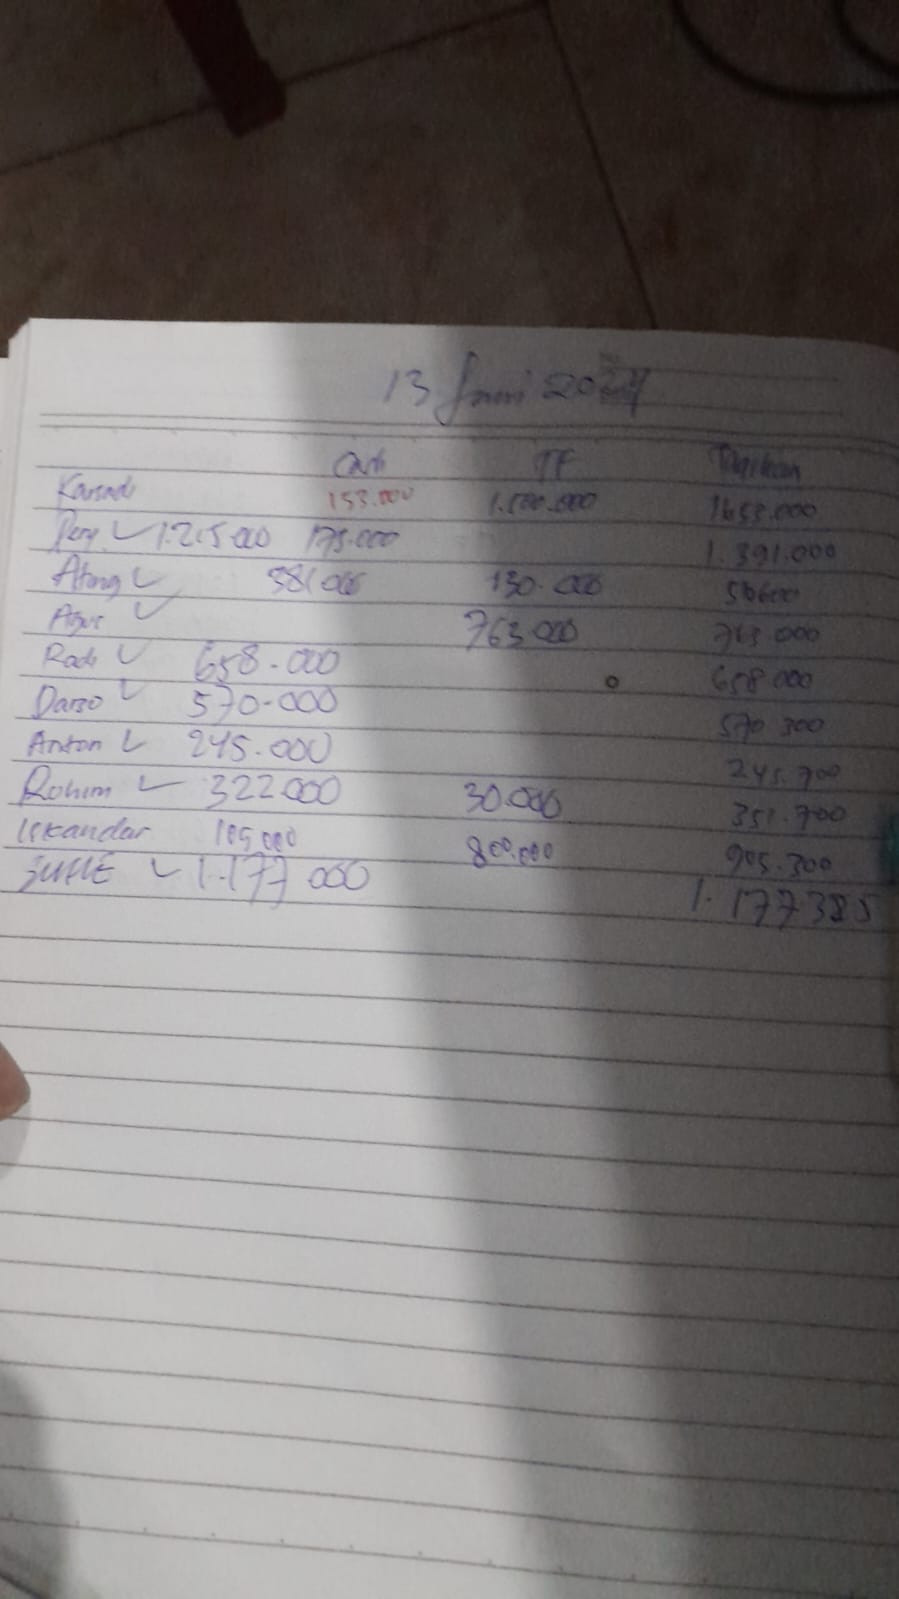 13 Juni 202
Cash TF Tagihan
153.000 1.500.000 1653.000
Dery 1.215000 175.000 1.391.000
Atang 381000 130.000
Agus 763000 763.000
Rado 658.000 658000
Darso 570.000 570 300
Anton 245.000 245.700
Rohim 322000 30.000 351.700
Iskandar 105,000 800.000 905.300
1.177 000 1.177385